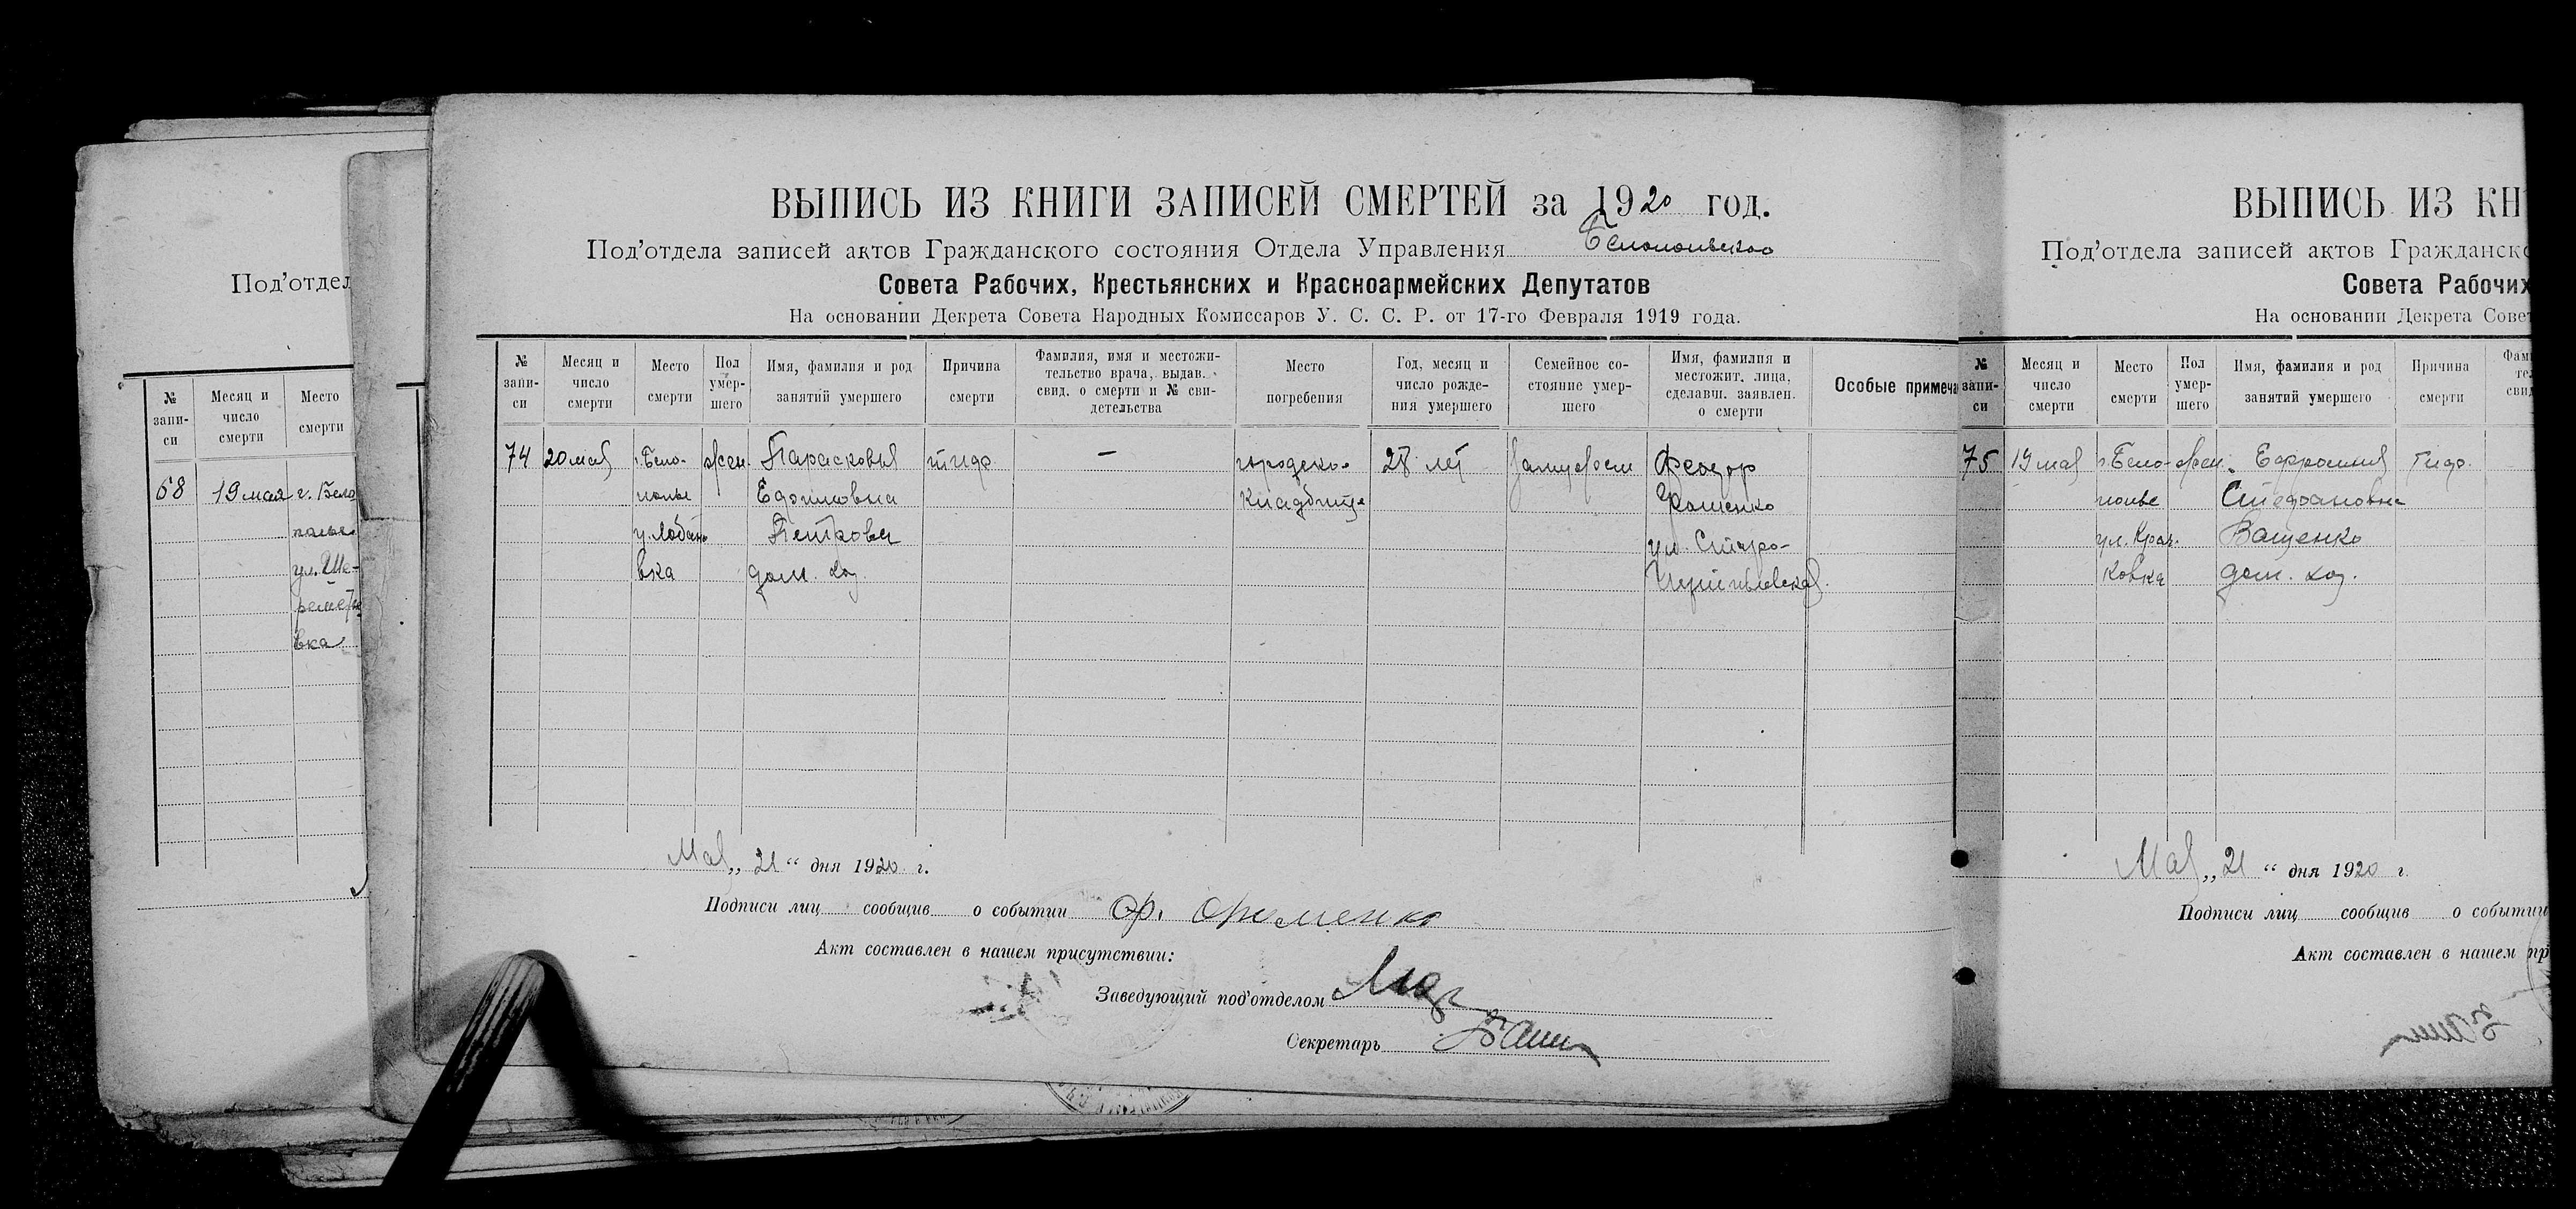 Под'отдел
№ запи-си
Месяц и число смерти
Место смерти
68 19 мая г. Бело
полье
ул. Ше-
реметь
вка
ВЫПИСЬ ИЗ КНИГИ ЗАПИСЕЙ СМЕРТЕЙ за 1920 год.
Под'отдела записей актов Гражданского состояния Отдела Управления Белопольского
Совета Рабочих, Крестьянских и Красноармейских Депутатов
На основании Декрета Совета Народных Комиссаров У. С. С. Р. от 17-го Февраля 1919 года.
№ запи-си
Месяц и число смерти
Место смерти
Пол умер-шего
Имя, фамилия и род занятий умершего
Причина смерти
Фамилия, имя и местожи-тельство врача, выдав. свид. о смерти и № сви-детельства
Место погребения
Год, месяц и число рожде-ния умершего
Семейное со-стояние умер-шего
Имя, фамилия и местожит. лица, сделавш. заявлен. о смерти
Особые примеча
74 20 мая г. Бело- жен. Парасковья тиф — городско 28 лет замужем Феодор
полье кладбище
у. Лобано Петрова ул. Старо-
вка дом. хоз. Черниговская
Мая „ 21 “ дня 1920 г.
Подписи лиц сообщив о событии Ф.
Акт составлен в нашем присутствии:
Заведующий под'отделом
Секретарь
ВЫПИСЬ ИЗ КН
Под'отдела записей актов Гражданск
Совета Рабочих
На основании Декрета Сове
№ запи-си
Месяц и число смерти
Место смерти
Пол умер-шего
Имя, фамилия и род занятий умершего
Причина смерти
75 19 мая г. Бело- жен. Ефросиния Тиф.
полье Стефановна
ул. Ващенко
ковка дом. хоз.
Мая „ 21 “ дня 1920 г.
Подписи лиц сообщив о событии
Акт составлен в нашем пр